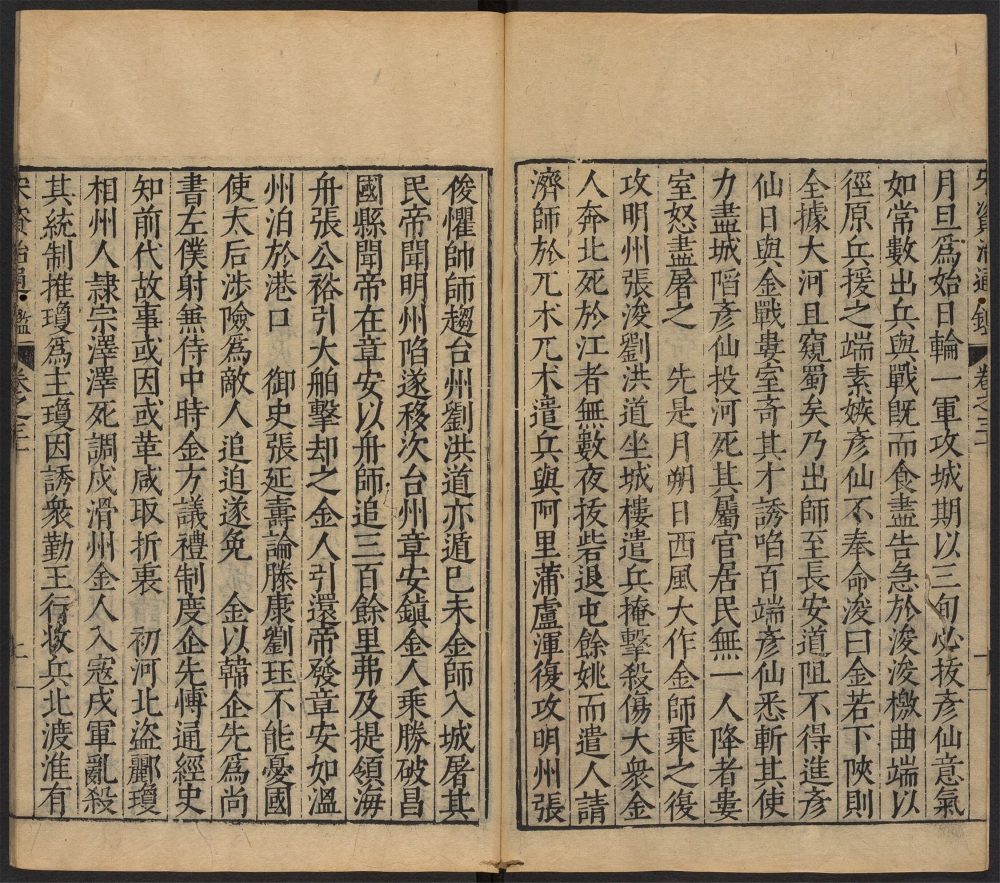 月旦爲始日輪一軍攻城期以三旬必拔彦仙意氣
如常數出兵與戰既而食盡告急於浚浚檄曲端以
徑原兵援之端素嫉彦仙不奉命浚曰金若下陜則
全據大河且窺蜀矣乃出師至長安道阻不得進彦
仙日與金戰婁室奇其才誘啗百端彦仙悉斬其使
力盡城陷彦仙投河死其屬官居民無一人降者婁
室怒盡屠之 先是月朔日西風大作金師乘之復
攻明州張浚劉洪道坐城樓遣兵掩擊殺傷大衆金
人奔北死於江者無數夜拔砦退屯餘姚而遣人請
濟師於兀朮兀朮遣兵與阿里蒲盧渾復攻明州張
俊懼帥師趨台州劉洪道亦遁巳未金師入城屠其
民帝聞明州陷遂移次台州章安鎮金人乘勝破昌
國縣聞帝在章安以舟師追三百餘里弗及提領海
舟張公裕引大舶擊却之金人引還帝發章安如溫
州泊於港口 御史張延壽論滕康劉珏不能憂國
使太后涉險爲敵人追迫遂免 金以韓企先爲尚
書左僕射無侍中時金方議禮制度企先愽通經史
知前代故事或因或革咸取折衷 初河北盜酈瓊
相州人隷宗澤澤死調戍滑州金人入寇戍軍亂殺
其統制推瓊爲主瓊因誘衆勤王行收兵北渡淮有